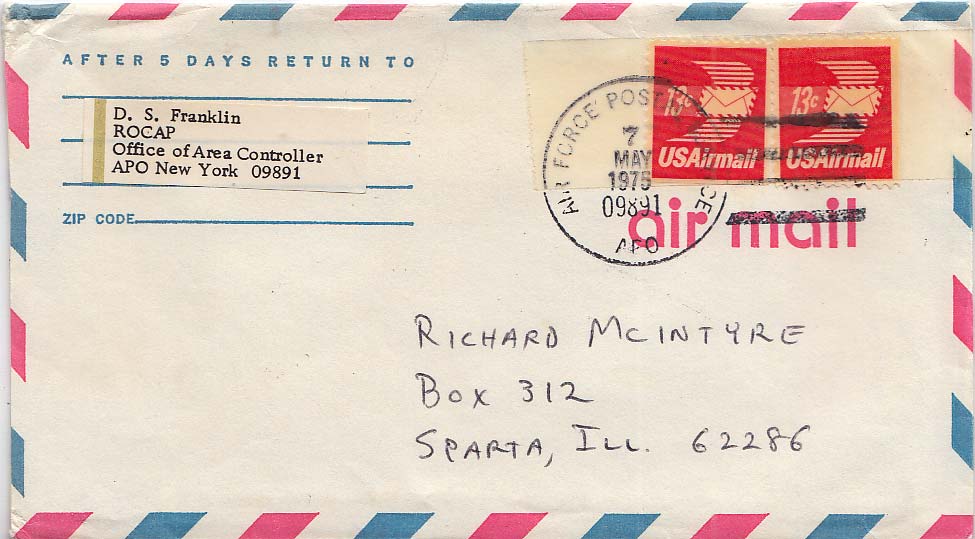 AFTER 5 DAYS RETURN TO
D. S. Franklin
ROCAP
Office of Area Controller
APO New York 09891
ZIP CODE
13c
USAirmail
13c
USAirmail
AIR FORCE POSTAL SERVICE
7
MAY
1975
09891
APO
air mail
RICHARD MCINTYRE
BOX 312
SPARTA, ILL. 62286